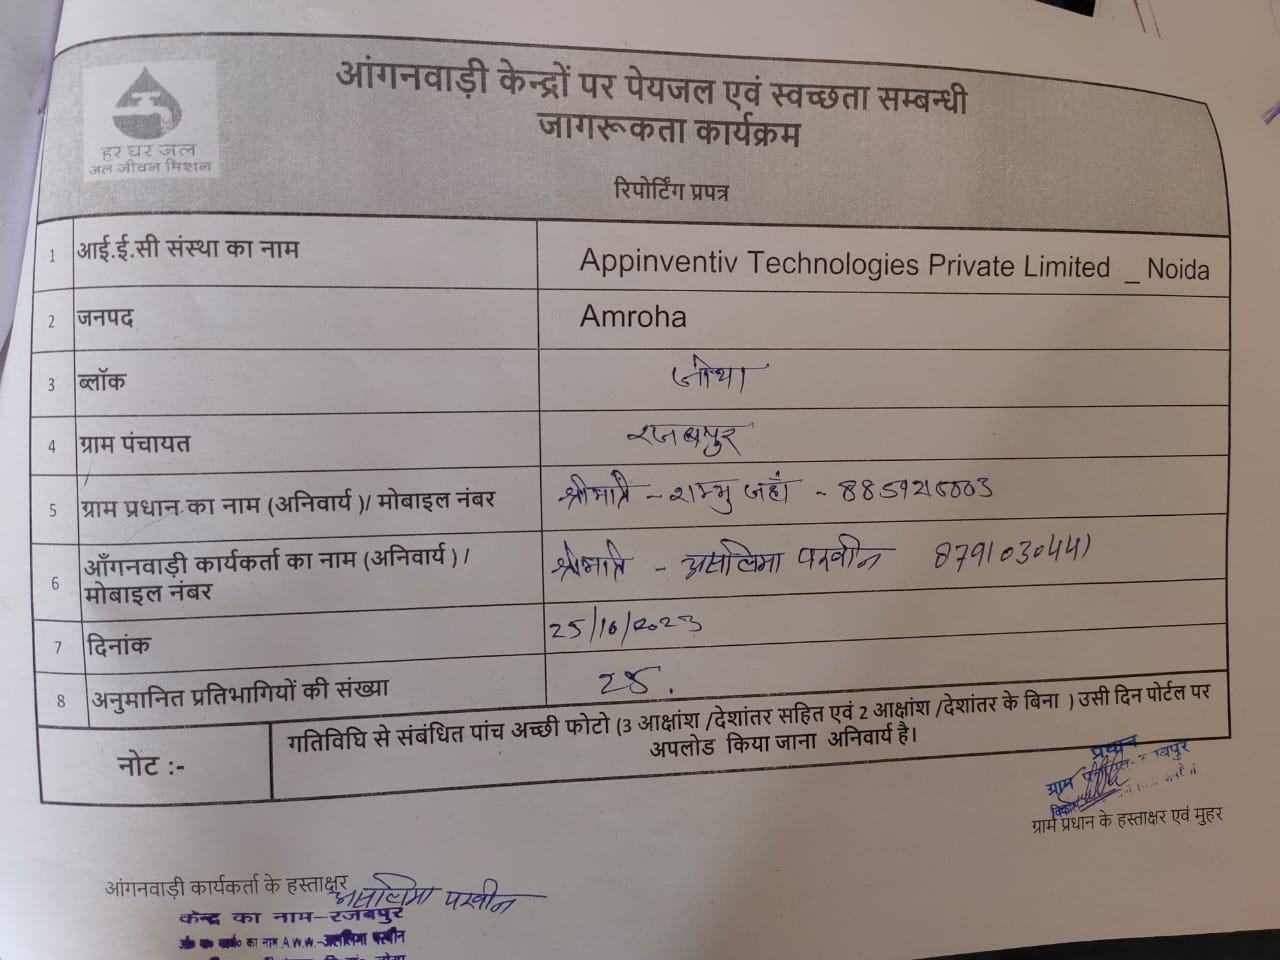 हर घर जल
जल जीवन मिशन
आंगनवाड़ी केन्द्रों पर पेयजल एवं स्वच्छता सम्बन्धी
जागरूकता कार्यक्रम
रिपोर्टिंग प्रपत्र
1 आई.ई.सी संस्था का नाम Appinventiv Technologies Private Limited _ Noida
2 जनपद Amroha
3 ब्लॉक जोया
4 ग्राम पंचायत रजबपुर
5 ग्राम प्रधान का नाम (अनिवार्य )/ मोबाइल नंबर श्रीमति - जहाँ -
6 आँगनवाड़ी कार्यकर्ता का नाम (अनिवार्य ) / श्रीमति - परवीन 8791030441
मोबाइल नंबर
7 दिनांक 25/10/2023
8 अनुमानित प्रतिभागियों की संख्या
नोट :- गतिविधि से संबंधित पांच अच्छी फोटो (3 आक्षांश /देशांतर सहित एवं 2 आक्षांश /देशांतर के बिना ) उसी दिन पोर्टल पर
अपलोड किया जाना अनिवार्य है।
प्रधान
ग्राम
ग्राम प्रधान के हस्ताक्षर एवं मुहर
आंगनवाड़ी कार्यकर्ता के हस्ताक्षर परवीन
केन्द्र का नाम-रजबपुर
का नाम A.W.W.- परवीन